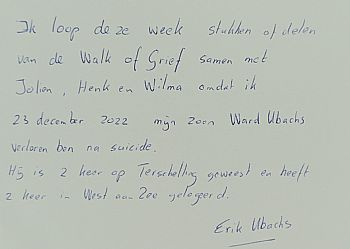 Ik loop deze week stukken of delen
van de Walk of Grief samen met
Jolien, Henk en Wilma omdat ik
23 december 2022 mijn zoon Ward Ubachs
verloren ben na suicide.
Hij is 2 keer op Terschelling geweest en heeft
2 keer in West aan Zee gelogeerd.
Erik Ubachs